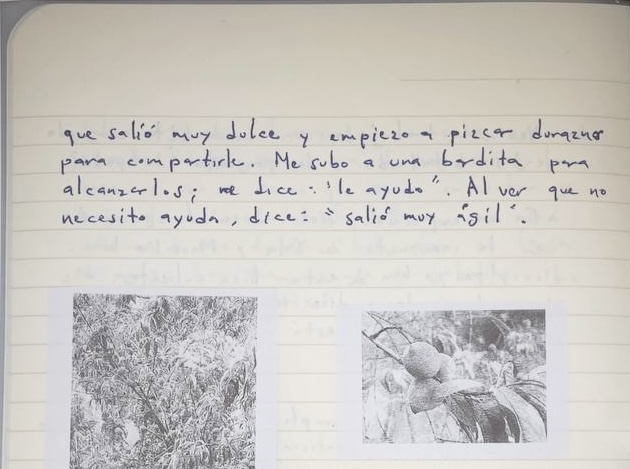 que salió muy dulce y empiezo a pizcar duraznos
para compartirle. Me subo a una bardita para
alcanzarlos; me dice: "le ayudo". Al ver que no
necesito ayuda, dice: "salió muy ágil".